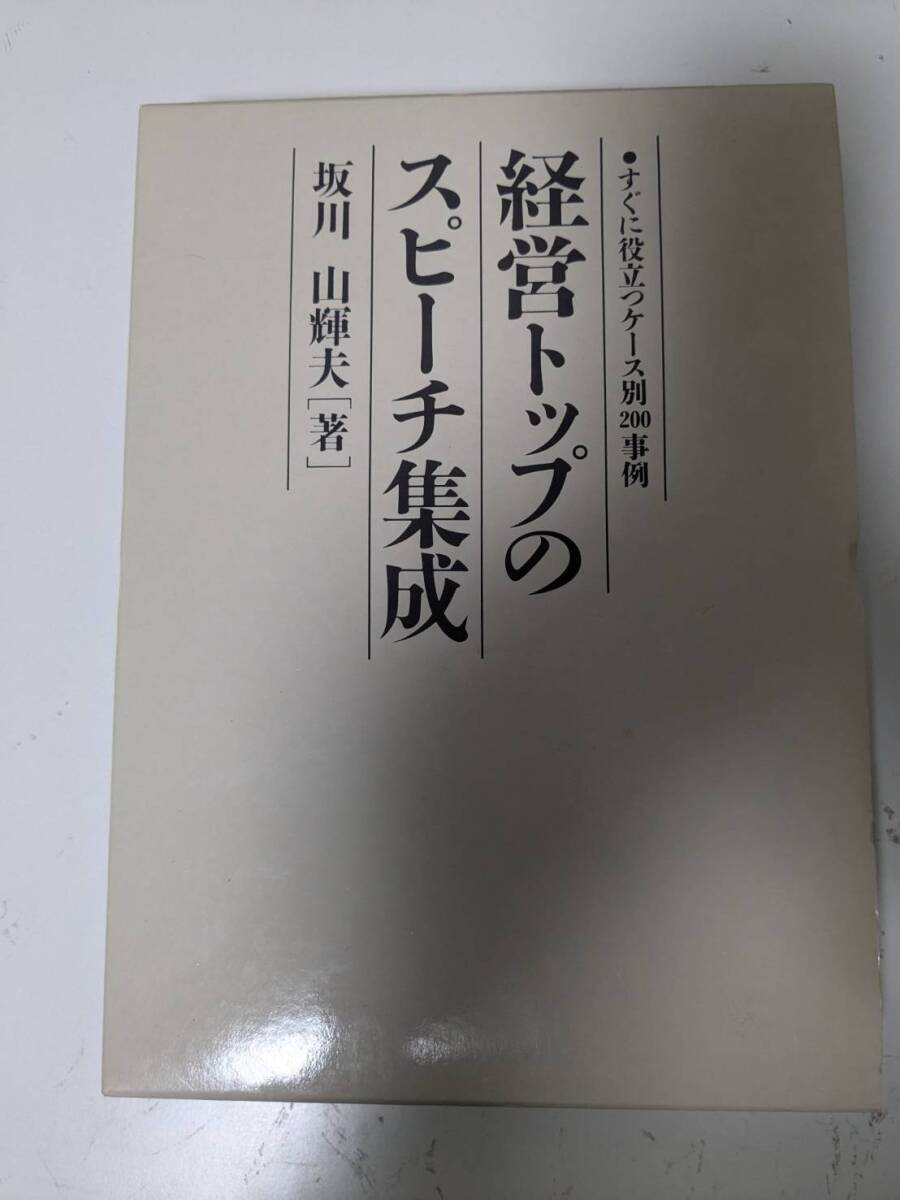 ●すぐに役立つケース別200事例
経営トップの
スピーチ集成
坂川 山輝夫[著]